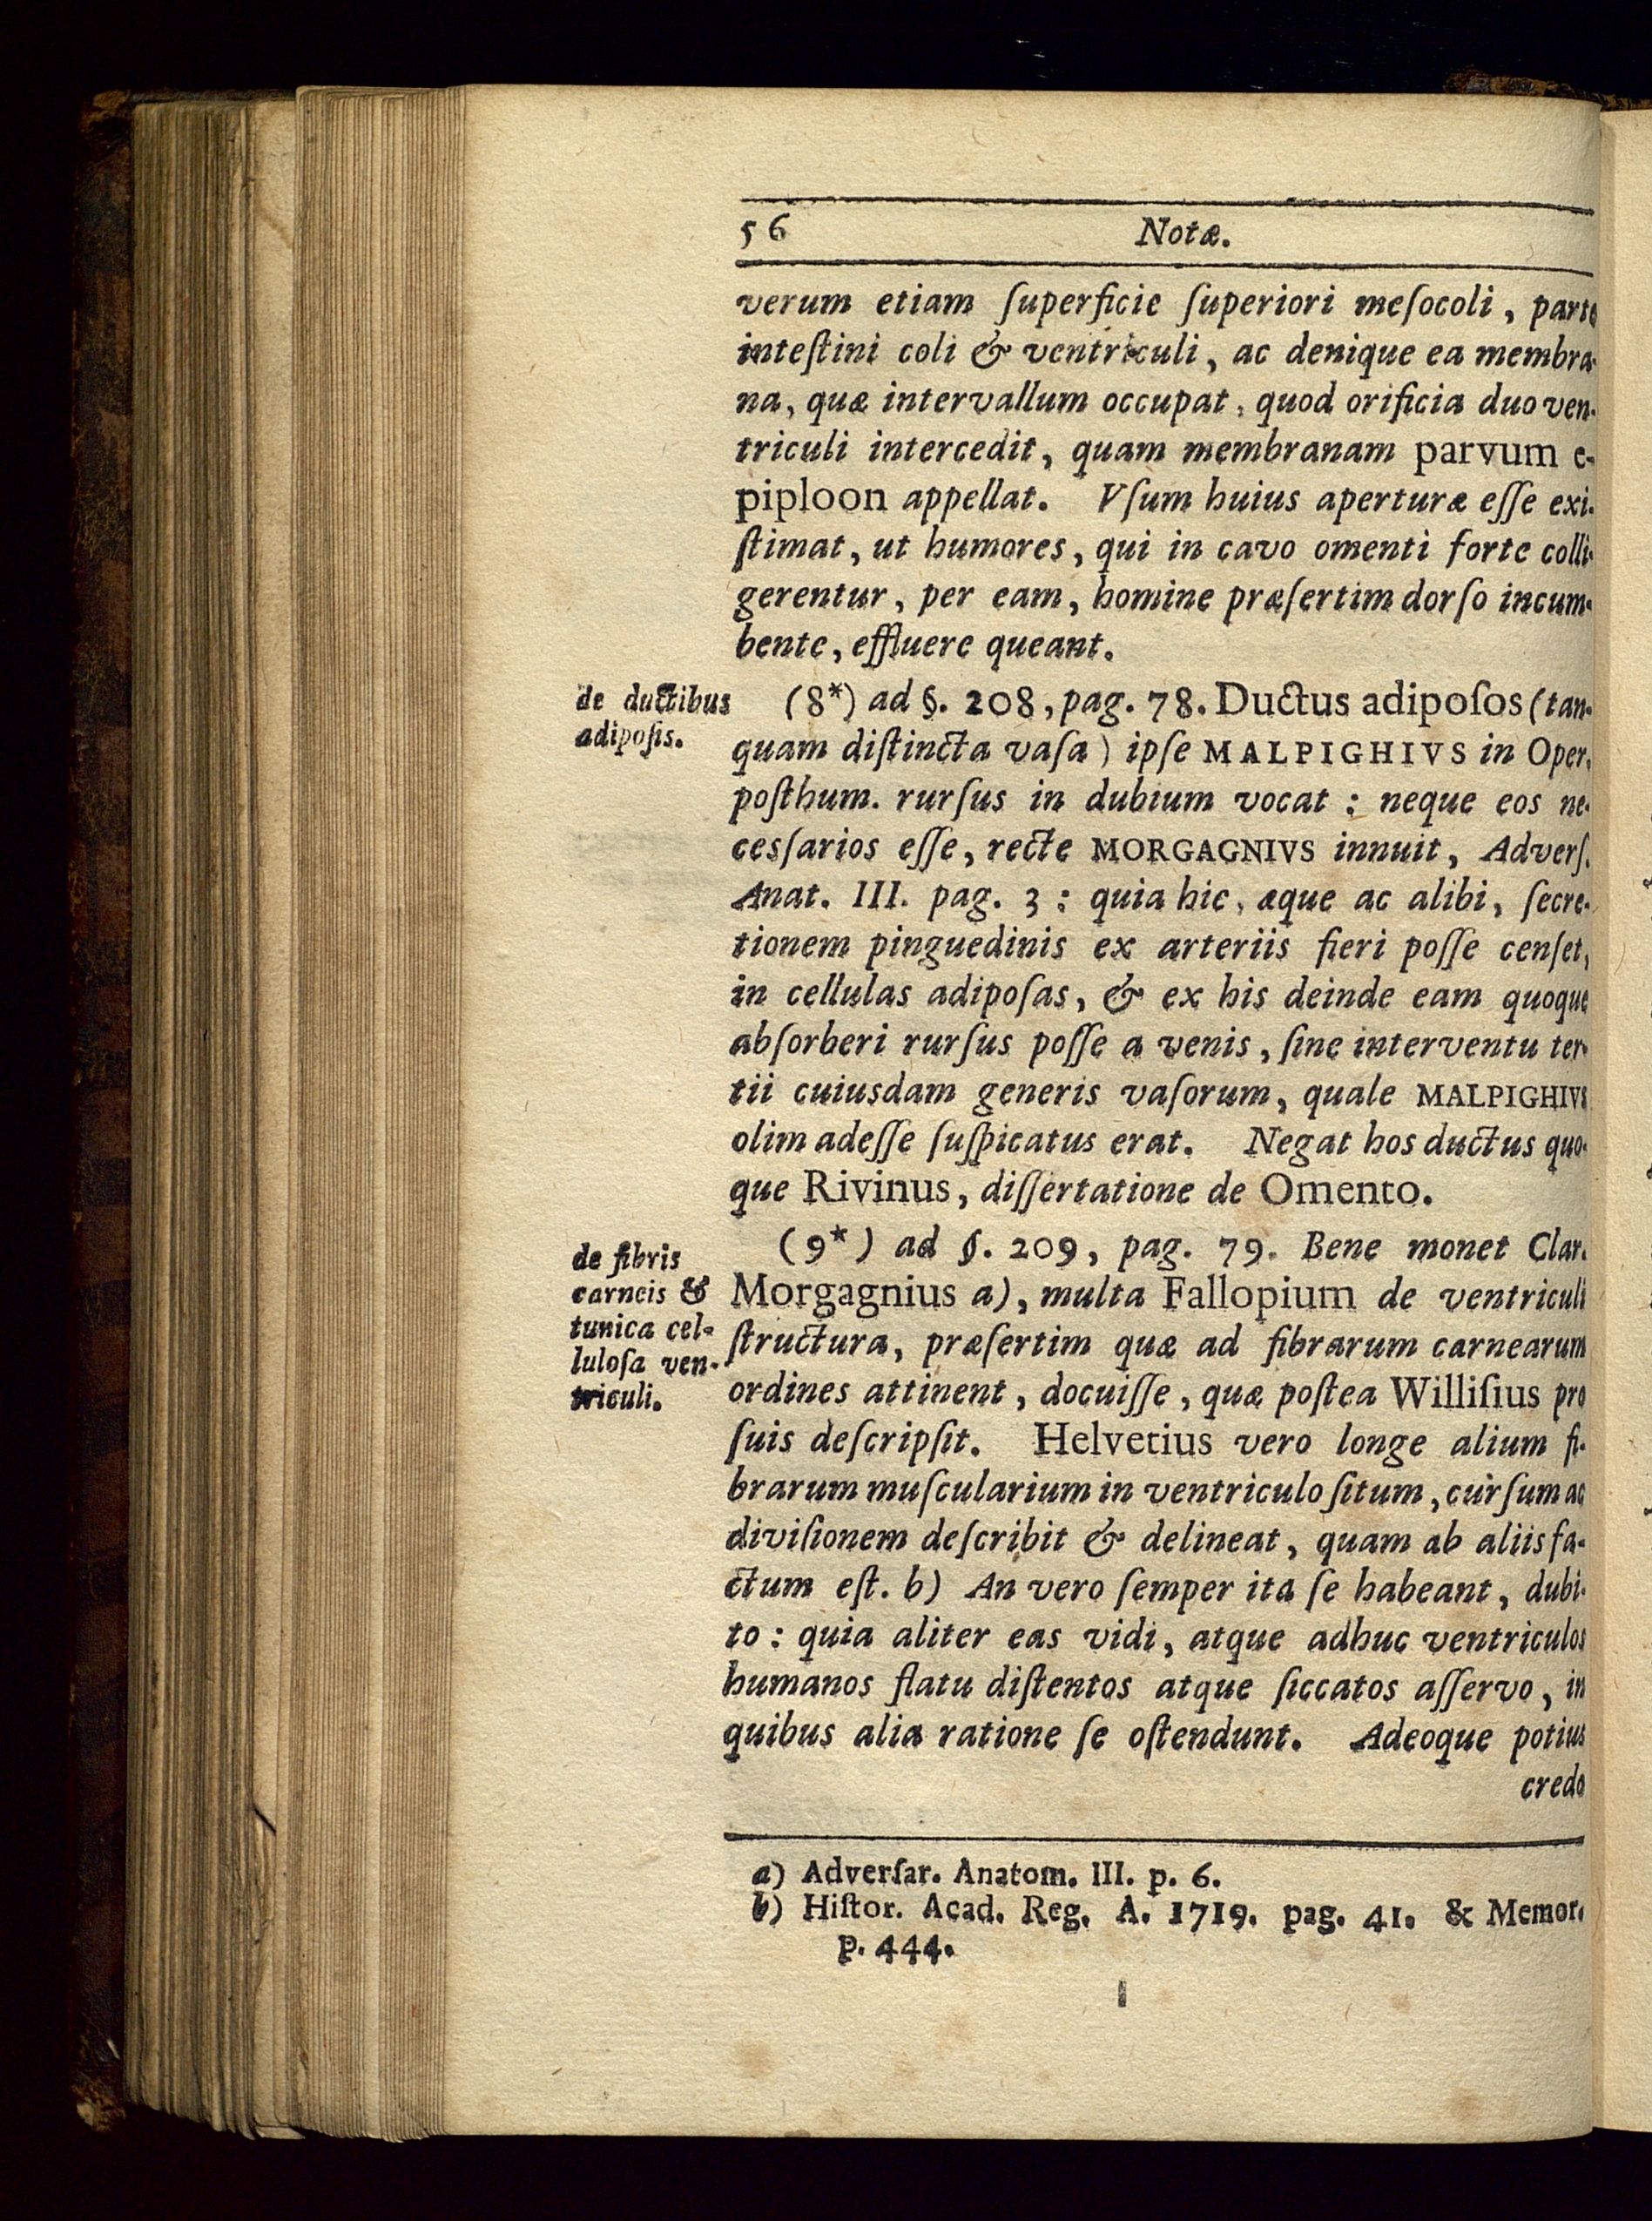 56 Notæ.
verum etiam ſuperficie ſuperiori meſocoli, parte
inteſtini coli & ventriculi, ac denique ea membra-
na, quæ intervallum occupat, quod orificia duo ven-
triculi intercedit, quam membranam parvum e-
piploon appellat. Vſum huius aperturæ eſſe exi-
ſtimat, ut humores, qui in cavo omenti forte colli-
gerentur, per eam, homine præſertim dorſo incum-
bente, effluere queant.
de ductibus
adipoſis.
(8*) ad §. 208, pag. 78. Ductus adipoſos (tan-
quam diſtincta vaſa) ipſe MALPIGHIVS in Oper.
poſthum. rurſus in dubium vocat: neque eos ne-
cesſarios eſſe, recte MORGAGNIVS innuit, Adverſ.
Anat. III. pag. 3: quia hic, æque ac alibi, ſecre-
tionem pinguedinis ex arteriis fieri poſſe cenſet,
in cellulas adipoſas, & ex his deinde eam quoque
abſorberi rurſus poſſe a venis, ſine interventu ter-
tii cuiusdam generis vaſorum, quale MALPIGHIVS
olim adeſſe ſuſpicatus erat. Negat hos ductus quo-
que Rivinus, diſſertatione de Omento.
de fibris
carneis &
tunica cel-
luloſa ven-
triculi.
(9*) ad §. 209, pag. 79. Bene monet Clar.
Morgagnius a), multa Fallopium de ventriculi
ſtructura, præſertim quæ ad fibrarum carnearum
ordines attinent, docuiſſe, quæ poſtea Williſius pro
ſuis deſcripſit. Helvetius vero longe alium fi-
brarum muſcularium in ventriculo ſitum, curſum ac
diviſionem deſcribit & delineat, quam ab aliis fa-
ctum eſt. b) An vero ſemper ita ſe habeant, dubi-
to: quia aliter eas vidi, atque adhuc ventriculos
humanos flatu diſtentos atque ſiccatos aſſervo, in
quibus alia ratione ſe oſtendunt. Adeoque potius
credo
a) Adverſar. Anatom. III. p. 6.
b) Hiſtor. Acad. Reg. A. 1719. pag. 41. & Memor.
p. 444.